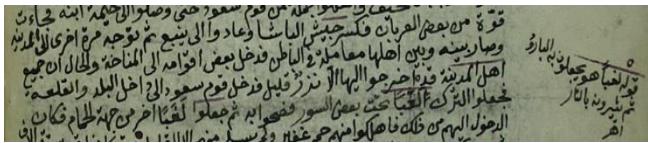 قوة من بعض العربان فكسر جيش الباشا وعادوا الى ينبع ثم توجه مرة اخرى الى المدينة
وصار بينه وبين اهلها معاملة في الباطن فدخل بعض اقوامه الى المناخة والحال ان جميع
اهل المدينة قد خرجوا اليها الا نذر قليل فدخل قوم سعود الى داخل البلد والقلعة
فجعلوا الترك لغبا تحت بعض السور ففتحوا به ثم جعلوا لغبا اخر من جهة الحمام فكان
الدخول اليهم من ذلك فاهلكوا منهم جم غفير
قوله لغبا هو يجعلونه بالبارود
ثم يثيرونه بالنار
اهـ